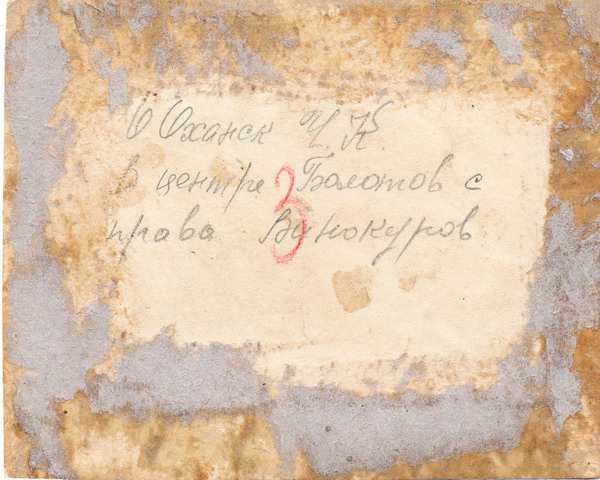 Оханск Ч.К.
В центре Болотов с
права Винокуров
3